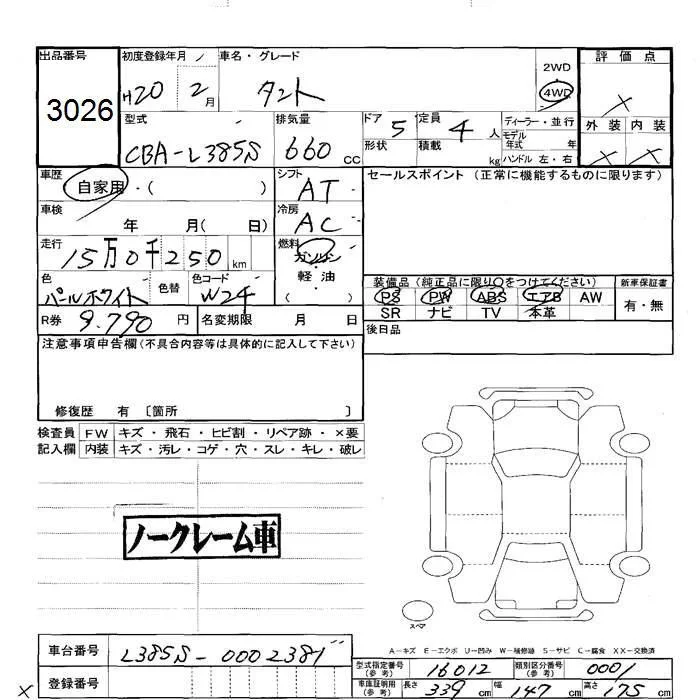 出品番号 初度登録年月 車名・グレード 2WD 評価点
3026 H20 2月 タント 4WD ×
型式 排気量 ドア 5 定員 4人 ディーラー・並行 外装 内装
CBA-L385S 660cc 形状 積載 kg モデル年式 年 × ×
ハンドル 左・右
車歴 自家用・( ) シフト AT セールスポイント(正常に機能するものに限ります)
車検 年 月( 日) 冷房 AC
走行 15万0千250km 燃料 ガソリン
軽・油
( )
色 パールホワイト 色替 色コード W24 装備品(純正品に限り○をつけてください) 新車保証書
PS PW ABS エアB AW 有・無
SR ナビ TV 本革
R券 9.790円 名変期限 月 日 後日品
注意事項申告欄(不具合内容等は具体的に記入して下さい)
修復歴 有 〔箇所 〕
検査員 FW キズ・飛石・ヒビ割・リペア跡・×要
記入欄 内装 キズ・汚レ・コゲ・穴・スレ・キレ・破レ
ノークレーム車
スペア
A−キズ E−エクボ U−凹み W−補修跡 S−サビ C−腐食 XX−交換済
車台番号 L385S-0002381 型式指定番号(参考) 16012 類別区分番号(参考) 0001
× 登録番号 車庫証明用(参考) 長さ 339cm 幅 147cm 高さ 175cm